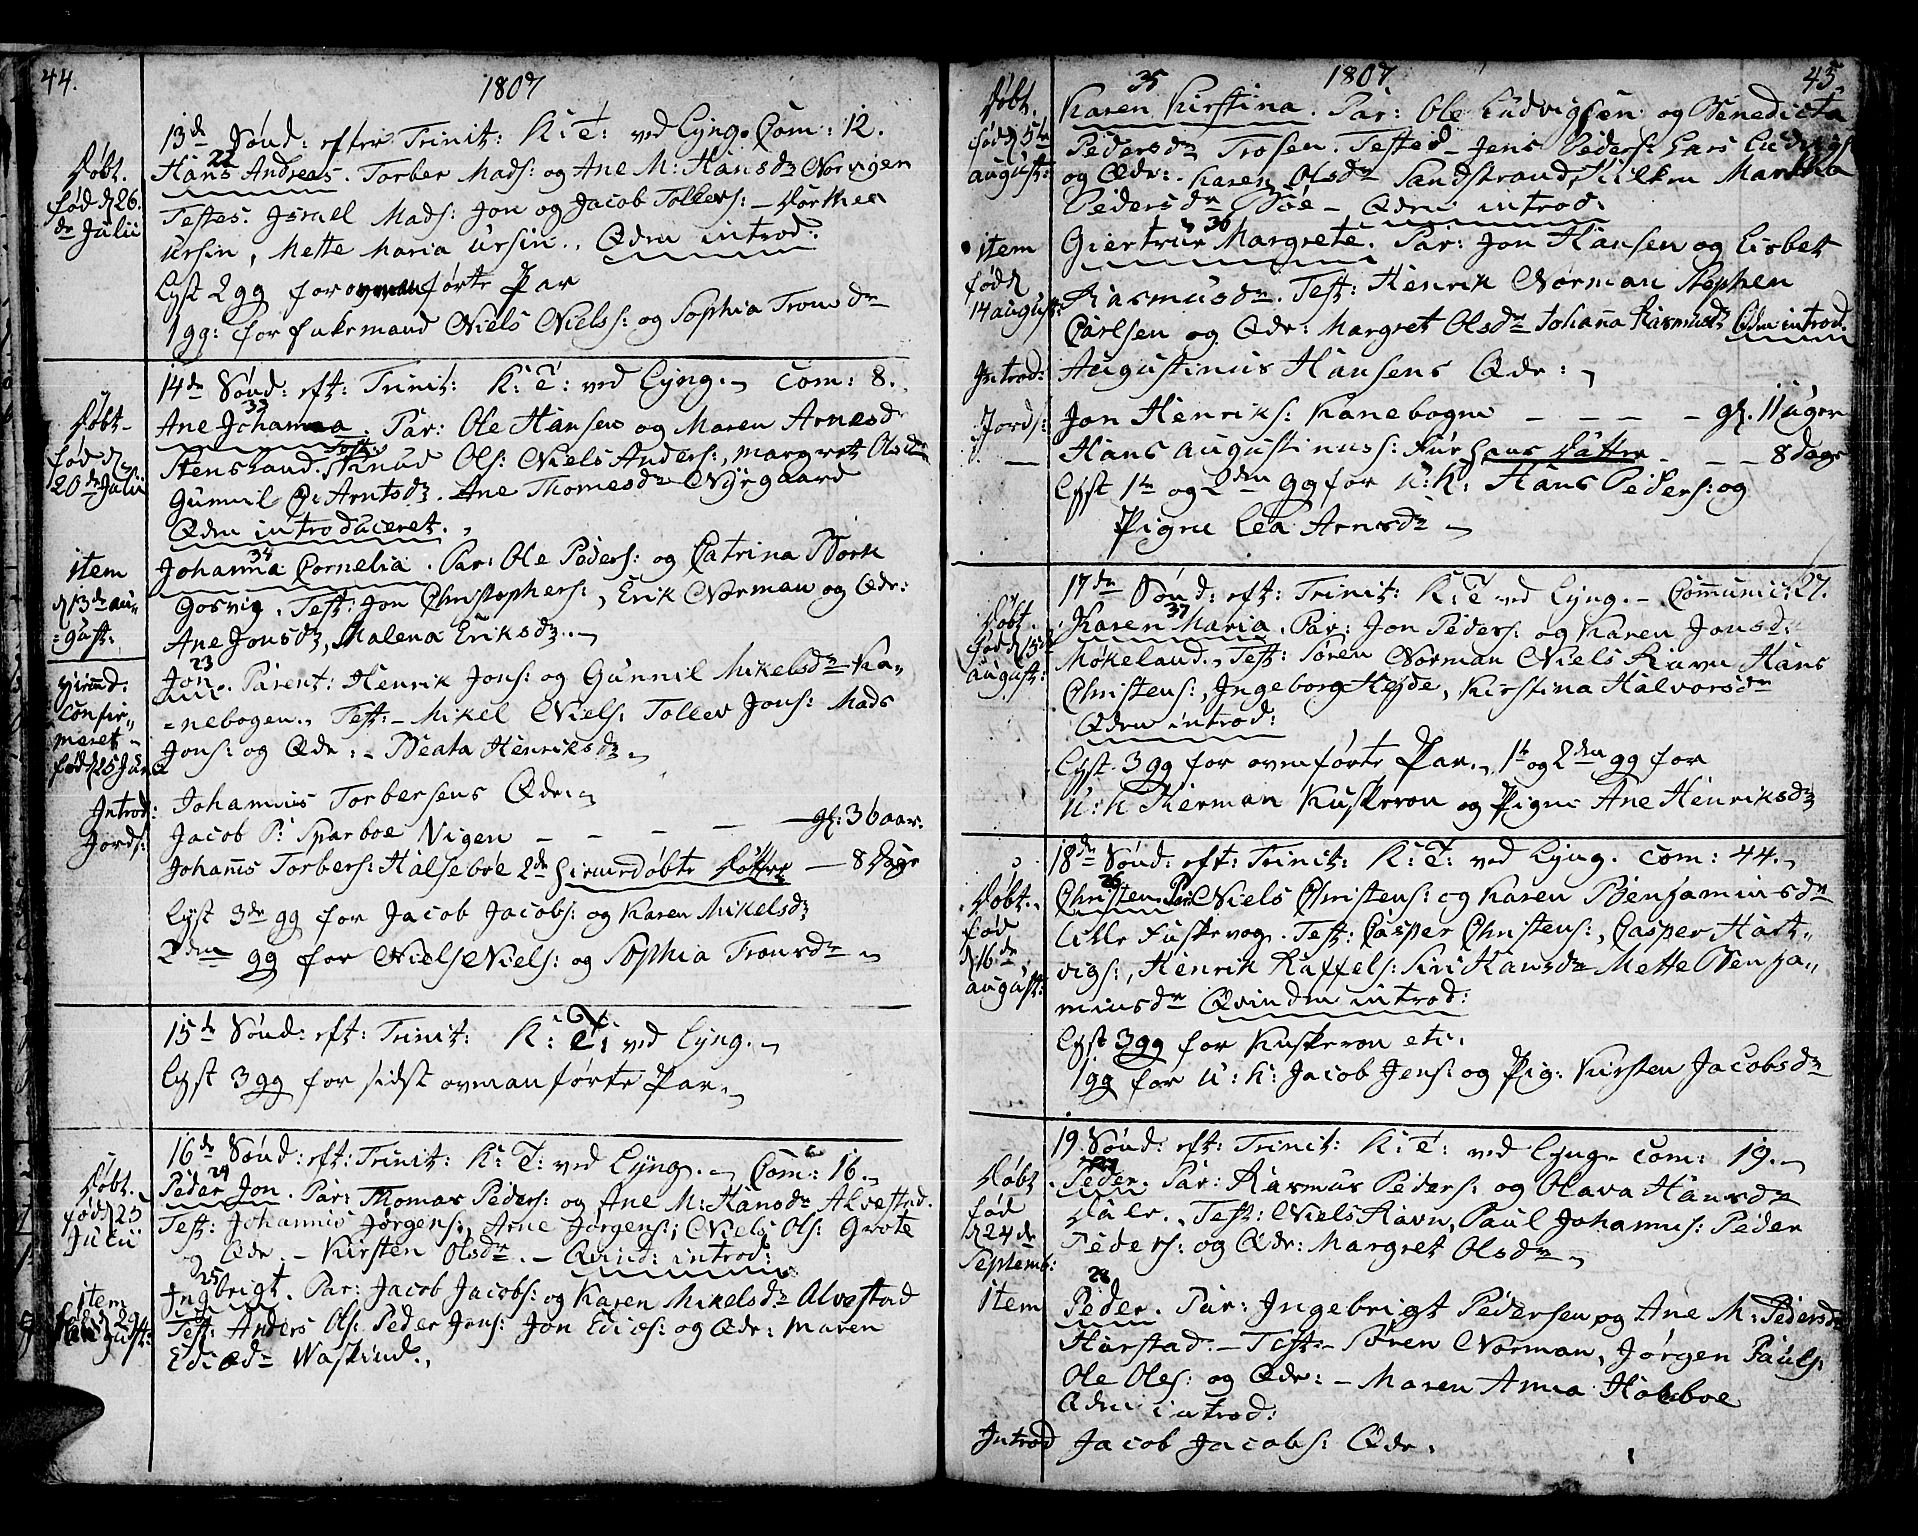 44.
1807
13de Sønd: efter Trinit: K: T: ved Lyng. Com: 12.
Døbt.
22
Hans Andreas. Torber Mads: og Ane M: Hansdr Norvigen
fød d 26.
de Julii
Testes. Israel Mads: Jon og Jacob Tollevs: – Dorthea
Ursin, Mette Maria Ursin. Qdm introd:
Lyst 2 gg for ovmanførte Par
1 gg: for Enkemand Niels Niels: og Sophia Trondr
14de Sønd: eft: Trinit: K: T: ved Lyng. Com: 8.
Døbt
33
Ane Johanna. Par: Ole Hansen og Maren Arnesdr
fød d
20de Julii
Stensland. Test: Knud Ols: Niels Anders:, Margret Olsdr
Gunnil Arntsdr. Ane Thomesdr Nyegaard
Qdm introduceret.
34
item
Johanna Cornelia. Par: Ole Peders: og Catrina Bork
d 13de au-
gust:
Gosvig. Test: Jon Christophers:, Erik Norman og Qdr:
Ane Jonsdr, Malena Eriksdr.
23
hiemd:
confir-
meret
fød d 25 Junii
Jon. Parent: Henrik Jons: og Gunnil Mikelsdr Ka-
nebogen. Test: Mikel Niels: Tollev Jons: Mads
Jons: og Qdr: Beata Henriksdr
Introd: Johannis Torbersens Qdr:
Jords: Jacob P: Sparboe Vigen – – – – gl: 36 aar.
Johannis Torbers: Halseboe 2de hiemedøbte Døttre – 8 Dage
Lyst 3de gg for Jacob Jacobs: og Karen Mikelsdr
2den gg for Niels Niels: og Sophia Tronsdr
15de Sønd: eft: Trinit: K: T: ved Lyng.
Lyst 3 gg for sidst ovmanførte Par.
16de Sønd: eft: Trinit: K: T: ved Lyng. Com: 16.
24
Døbt.
fød d 23
Julii
Peder Jon. Par: Thomas Peders: og Ane M: Hansdr Alvestad.
Test: Johannis Jørgens:, Arne Jørgens:, Niels Ols: Grøte
og Qdr. – Kirsten Olsdr. – Qvind: introd:
25
item
Ingbrigt. Par: Jacob Jacobs: og Karen Mikelsdr Alvestad
Test: Anders Ols: Peder Jons: Jon Edies: og Qdr: Maren
Ediædr Waskind.
45.
1807
35
Døbt.
fød d 5te
august:
Karen Kirstina. Par: Ole Ludvigsen og Benedicta
Pedersdr Trosen. Testes – Jens Peders: Lars Ludvigs
og Qdr: Karen Olsdr Sandstrand, Martha
Pedersdr Bøe – Qdm introd:
36
item
fød d
14 august:
Giertrur Margrete. Par: Jon Hansen og Lisbet
Rasmusdr. Test: Henrik Norman Stephen
Carlsen og Qdr: Margret Olsdr Johanna Rasmusdr Qdm introd.
Introd: Augustinus Hansens Qdr:
Jords: Jon Henriks: Kanebogen – – – – gl. 11 uger
Hans Augustinuss: Fur hans Datter – – – 8 dage
Lyst 1te og 2den gg for U: K: Hans Peders: og
Pigen Lea Arnsdr
17de Sønd: eft: Trinit: K: T ved Lyng. – Communic: 27.
37
Døbt.
august:
Karen Maria. Par: Jon Peders: og Karen Jonsd:
Møkeland. Test: Søren Norman Niels Ravn Hans
Christens:, Ingeborg Hejde, Kirstina Halvorsdr
Qdm introd:
Lyst 3 gg for ovenførte Par. 1te og 2den gg for
U: K Sherman Kuskeron og Pigen Ane Henriksdr
18de Sønd: eft: Trinit: K: T: ved Lyng. Com: 44.
26
Døbt.
fød
d 16de
august:
Christen. Par Niels Christens: og Karen Benjaminsdr
Lille Fuskevog. Test: Casper Christens:, Casper Hart-
vigs:, Henrik Raffels: Siri Hansdr Mette Benja-
minsdr Qvinden introd:
Lyst 3 gg for Kuskeron etc.
1 gg for U: K: Jacob Jens: og Pig: Kirsten Jacobsdr
19. Sønd: eft: Trinit: K: T: ved Lyng. Com: 19.
Døbt.
fød
d 24de
Septemb:
Peder. Par: Rasmus Peders: og Olava Hansdr
Dale. Test: Niels Ravn, Paul Johannis: Peder
Peders: og Qdr: Margret Olsdr
28
item
Peder. Par: Ingebrigt Pedersen og Ane M: Pedersdr
Harstad. – Test Søren Norman, Jørgen Pauls:
Ole Oles: og Qdr: – Maren Anna Holeboe
Qdm introd:
Introd Jacob Jacobs: Qdr.